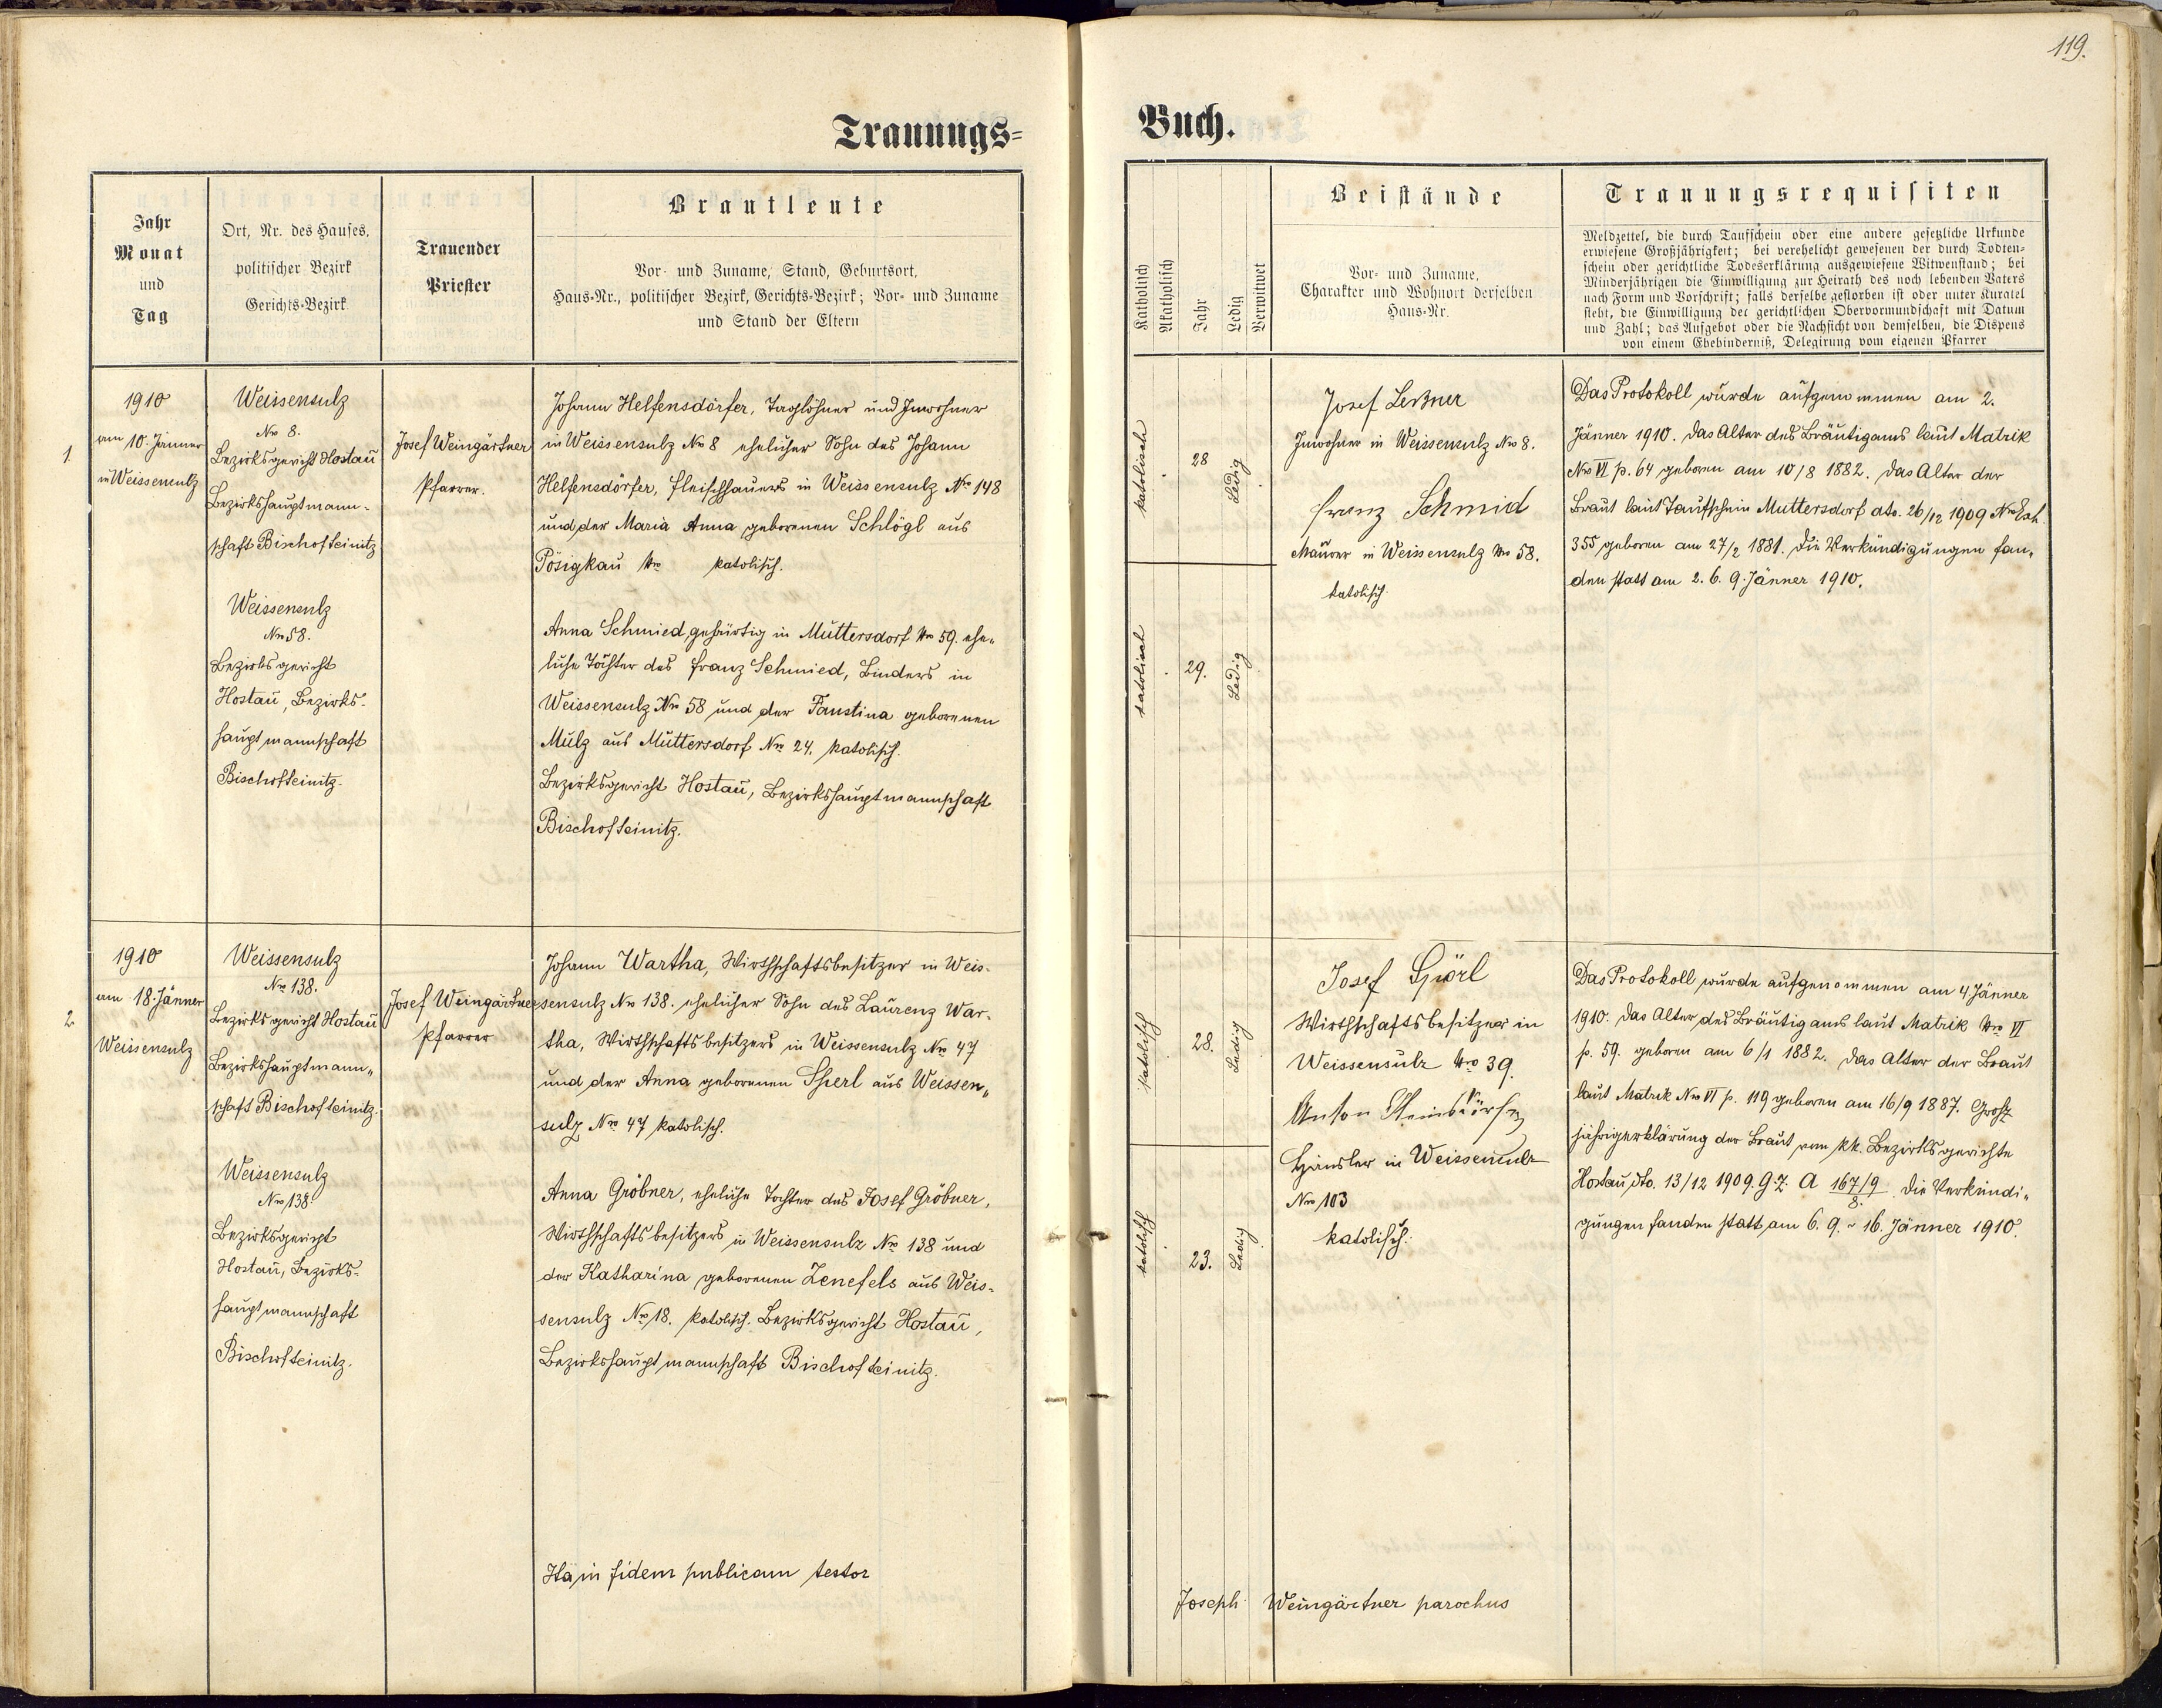 119.
Trauungs=
Buch.
Jahr
Monat
und
Tag
Ort, Nr. des Hauses,
politischer Bezirk
Gerichts-Bezirk
Trauender
Priester
Brautleute
Vor- und Zuname, Stand, Geburtsort,
Haus-Nr., politischer Bezirk, Gerichts-Bezirk; Vor- und Zuname
und Stand der Eltern
Katholisch
Akatholisch
Jahr
Ledig
Verwitwet
Beistände
Vor- und Zuname,
Charakter und Wohnort derselben
Haus-Nr.
Trauungsrequisiten
Meldzettel, die durch Taufschein oder eine andere gesetzliche Urkunde
erwiesene Großjährigkeit; bei verehelicht gewesenen der durch Todten-
schein oder gerichtliche Todeserklärung ausgewiesene Witwenstand; bei
Minderjährigen die Einwilligung zur Heirath des noch lebenden Vaters
nach Form und Vorschrift; falls derselbe gestorben ist oder unter Kuratel
steht, die Einwilligung der gerichtlichen Obervormundschaft mit Datum
und Zahl; das Aufgebot oder die Nachsicht von demselben, die Dispens
von einem Ehehinderniß, Delegirung vom eigenen Pfarrer
1.
1910
am 10. Jänner
in Weissensulz
Weissensulz
Nro 8.
Bezirksgericht Hostau
Bezirkshauptmann-
schaft Bischofteinitz
Weissensulz
Nro 58.
Bezirksgericht
Hostau, Bezirks-
hauptmannschaft
Bischofteinitz.
Josef Weingärtner
Pfarrer.
Johann Helfensdörfer, Taglöhner und Inwohner
in Weissensulz Nro 8 ehelicher Sohn des Johann
Helfensdörfer, Fleischhauers in Weissensulz Nro 148
und der Maria Anna geborenen Schlögl aus
Pösigkau Nro katolisch.
Anna Schmied, gebürtig in Muttersdorf Nro 59. ehe„
liche Tochter des Franz Schmied, Binders in
Weissensulz Nro 58 und der Faustina geborenen
Mulz aus Muttersdorf Nro 24. katolisch.
Bezirksgericht Hostau, Bezirkshauptmannschaft
Bischofteinitz.
katolisch
28
Ledig
katolisch
29.
Ledig
Josef Leßner
Inwohner in Weissensulz Nro 8.
Franz Schmid
Maurer in Weissensulz Nro 58.
katolisch.
Das Protokoll wurde aufgenommen am 2.
Jänner 1910. Das Alter des Bräutigams laut Matrik
Nro VI p. 64 geboren am 10/8 1882. Das Alter der
Braut laut Taufschein Muttersdorf dto. 26/12 1909 Nro Exh.
355 geboren am 27/2 1881. Die Verkündigungen fan„
den statt am 2. 6. 9. Jänner 1910.
2
1910
am 18. Jänner
Weissensulz
Weissensulz
Nro 138.
Bezirksgericht Hostau
Bezirkshauptmann„
schaft Bischofteinitz.
Weissensulz
Nro 138.
Bezirksgericht
Hostau, Bezirks-
hauptmannschaft
Bischofteinitz.
Josef Weingärtner
Pfarrer
Johann Wartha, Wirthschaftsbesitzer in Weis-
sensulz Nro 138. ehelicher Sohn des Laurenz War-
tha, Wirthschaftsbesitzers in Weissensulz Nro 47
und der Anna geborenen Sperl aus Weissen„
sulz Nro 47 katolisch.
Anna Gröbner, eheliche Tochter des Josef Gröbner,
Wirthschaftsbesitzers in Weissensulz Nro 138 und
der Katharina geborenen Zenefels aus Weis-
sensulz Nro 18. katolisch. Bezirksgericht Hostau,
Bezirkshauptmannschaft Bischofteinitz.
katolisch
28.
Ledig
katolisch
23.
Ledig
Josef Spörl
Wirthschaftsbesitzer in
Weissensulz Nro 39.
Anton
Häusler in Weissensulz
Nro 103
katolisch.
Das Protokoll wurde aufgenommen am 4 Jänner
1910. Das Alter des Bräutigams laut Matrik Nro VI
p. 59. geboren am 6/1 1882. Das Alter der Braut
laut Matrik Nro VI p. 119 geboren am 16/9 1887. Groß-
jährigerklärung der Braut vom kk. Bezirksgerichte
Hostau dto. 13/12 1909. G.Z. A 167/9/8. Die Verkündi„
gungen fanden statt am 6. 9. u 16. Jänner 1910.
Ita in fidem publicam testor
Joseph Weingärtner parochus